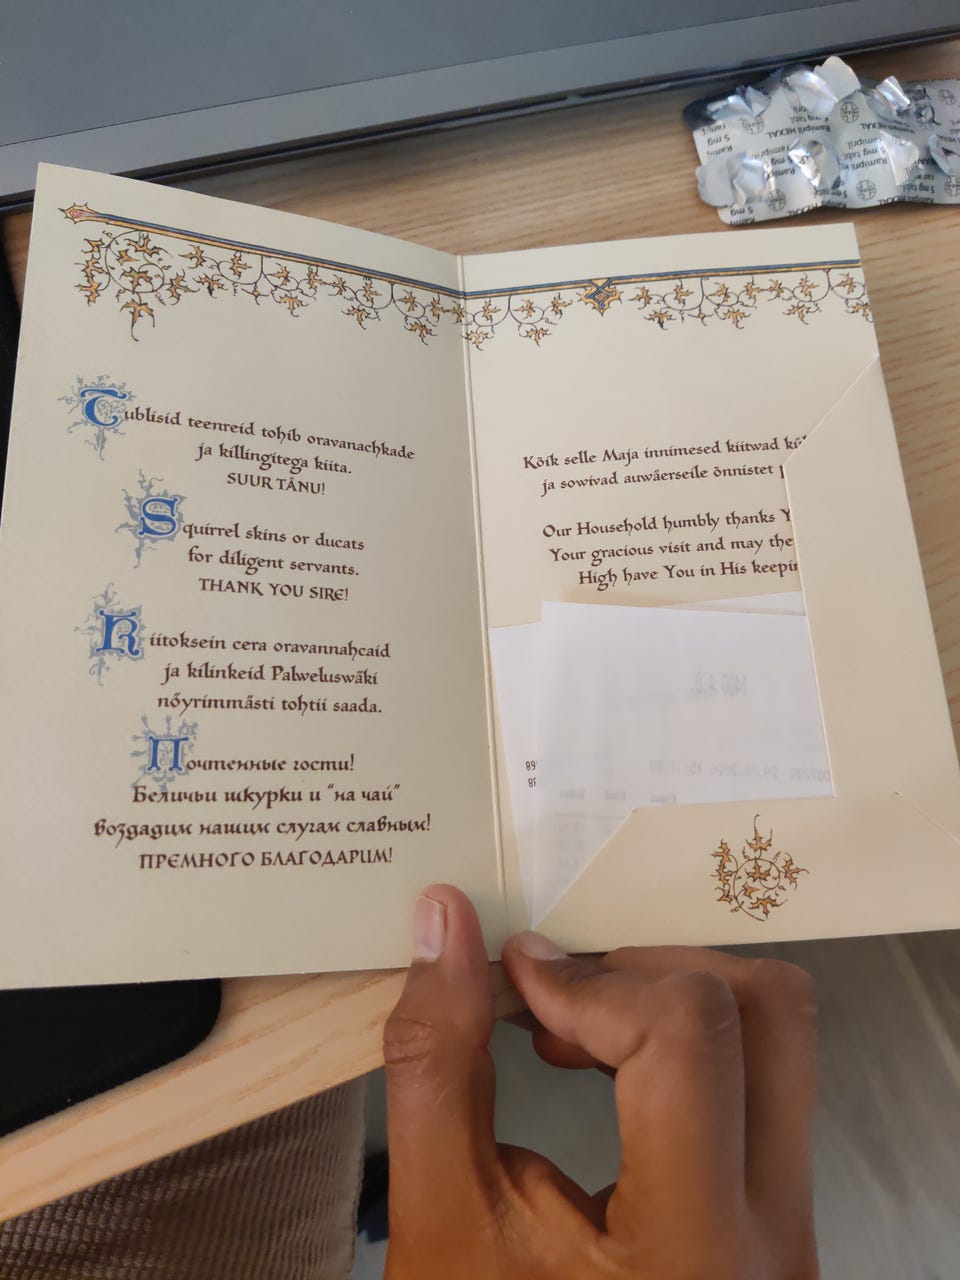 Tublisid teenreid tohib oravanachkade
ja killingitega kiita.
SUUR TÄNU!
Squirrel skins or ducats
for diligent servants.
THANK YOU SIRE!
Kiitoksein cera oravannahcaid
ja kilinkeid Palweluswäki
nöyrimmästi tohtii saada.
Почтенные гости!
Беличьи шкурки и "на чай"
воздадим нашим слугам славным!
ПРЕМНОГО БЛАГОДАРИМ!
Kõik selle Maja innimesed kiitwad
ja sowivad auwäerseile õnnistet
Our Household humbly thanks
Your gracious visit and may the
High have You in His keepin
1400 A.D.
Ramipril HEXAL
5 mg tabl.